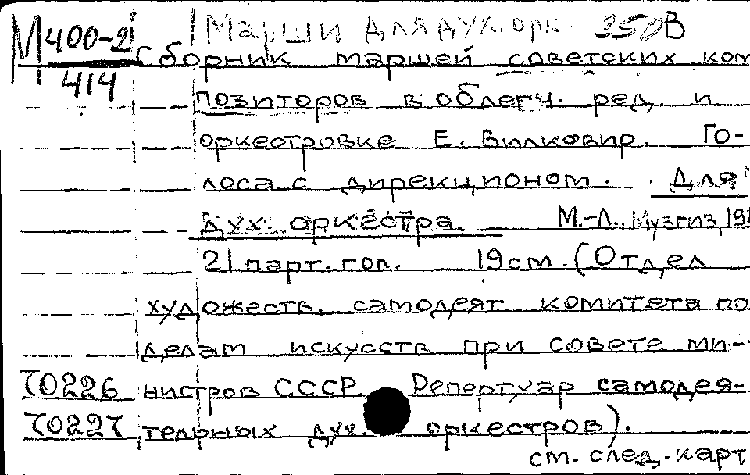 М400-2 Марши для дух. орк. 350В
414
Сборник маршей советских ком
позиторов в облегч. ред. и
оркестровке Е. Вилковир. Го-
лоса с дирекционом. Для
дух. оркестра. М.-Л., Музгиз, 19
21 парт. гол. 19 см. (Отдел
художеств. самодеят комитета по
делам искусств при совете ми-
70226 нистров СССР. Репертуар самодея-
70227 тельных дух. оркестров).
см. след. карт